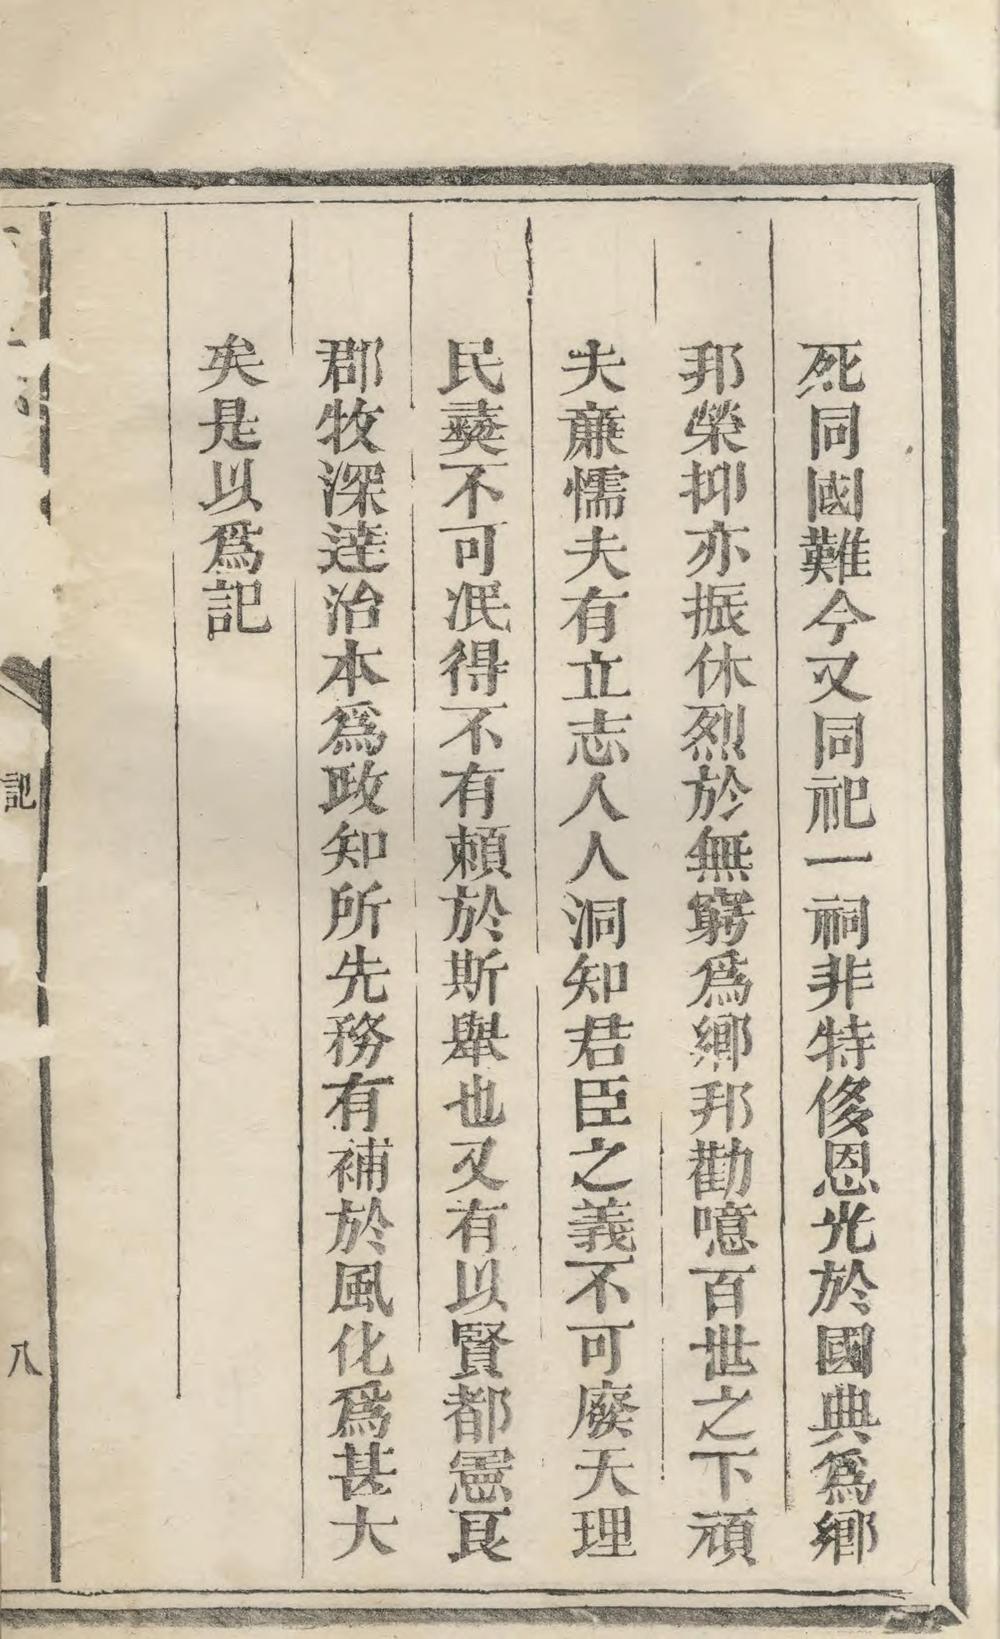 死同國難今又同祀一祠非特侈恩光於國典爲鄉
邦榮抑亦振休烈於無窮爲鄉邦勸噫百世之下頑
夫廉懦夫有立志人人洞知君臣之義不可廢天理
民彞不可泯得不有賴於斯舉也又有以賢都憲良
郡牧深達治本爲政知所先務有補於風化爲甚大
矣是以爲記
記
八